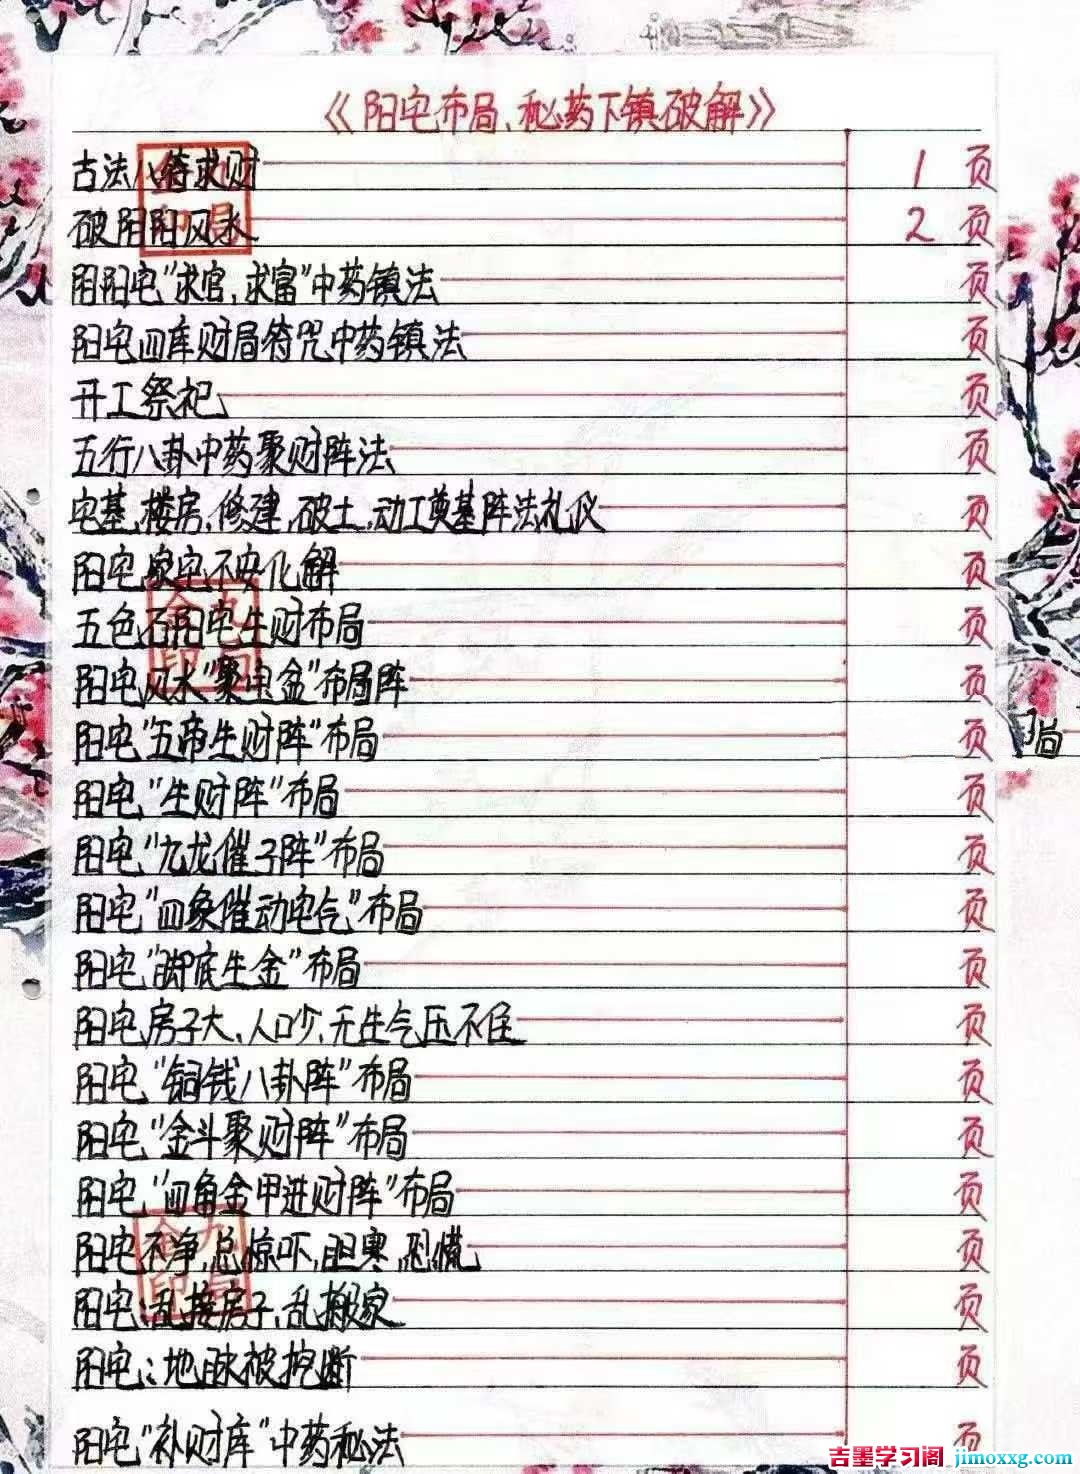 《阳宅布局、秘药下镇破解》
古法八符求财 1 页
破阴阳风水 2 页
阴阳宅"求官,求富"中药镇法 页
阳宅四库财局符咒中药镇法 页
开工祭祀 页
五行八卦中药聚财阵法 页
宅基,楼房,修建,破土,动工奠基阵法礼仪 页
阳宅家宅不安化解 页
五色石阳宅生财布局 页
阳宅风水"聚宝盆"布局阵 页
阳宅"五帝生财阵"布局 页
局
阳宅"生财阵"布局 页
阳宅"九龙催子阵"布局 页
阳宅"四象催动宅气"布局 页
阳宅"脚底生金"布局 页
阳宅房子大、人口少,无生气压不住 页
阳宅"铜钱八卦阵"布局 页
阳宅"金斗聚财阵"布局 页
阳宅"四角金甲进财阵"布局 页
阳宅不净,总惊吓,胆寒,恐慌 页
阳宅:乱接房子,乱搬家 页
阳宅:地脉被挖断 页
阳宅"补财库"中药秘法 页
吉墨学习阁 jimoxxg.com